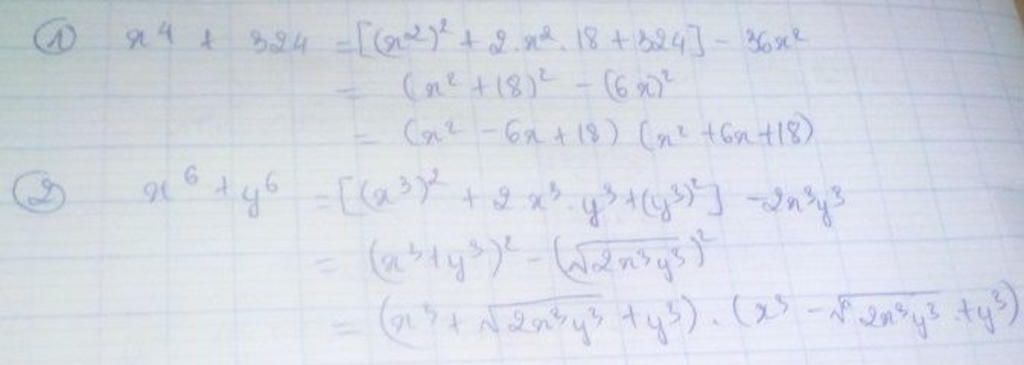 ① x⁴ + 324 = [(x²)² + 2.x².18 + 324] - 36x²
= (x² + 18)² - (6x)²
= (x² - 6x + 18) (x² + 6x + 18)
② x⁶ + y⁶ = [(x³)² + 2x³.y³ + (y³)²] - 2x³y³
= (x³ + y³)² - (√2x³y³)²
= (x³ + √2x³y³ + y³) . (x³ - √2x³y³ + y³)